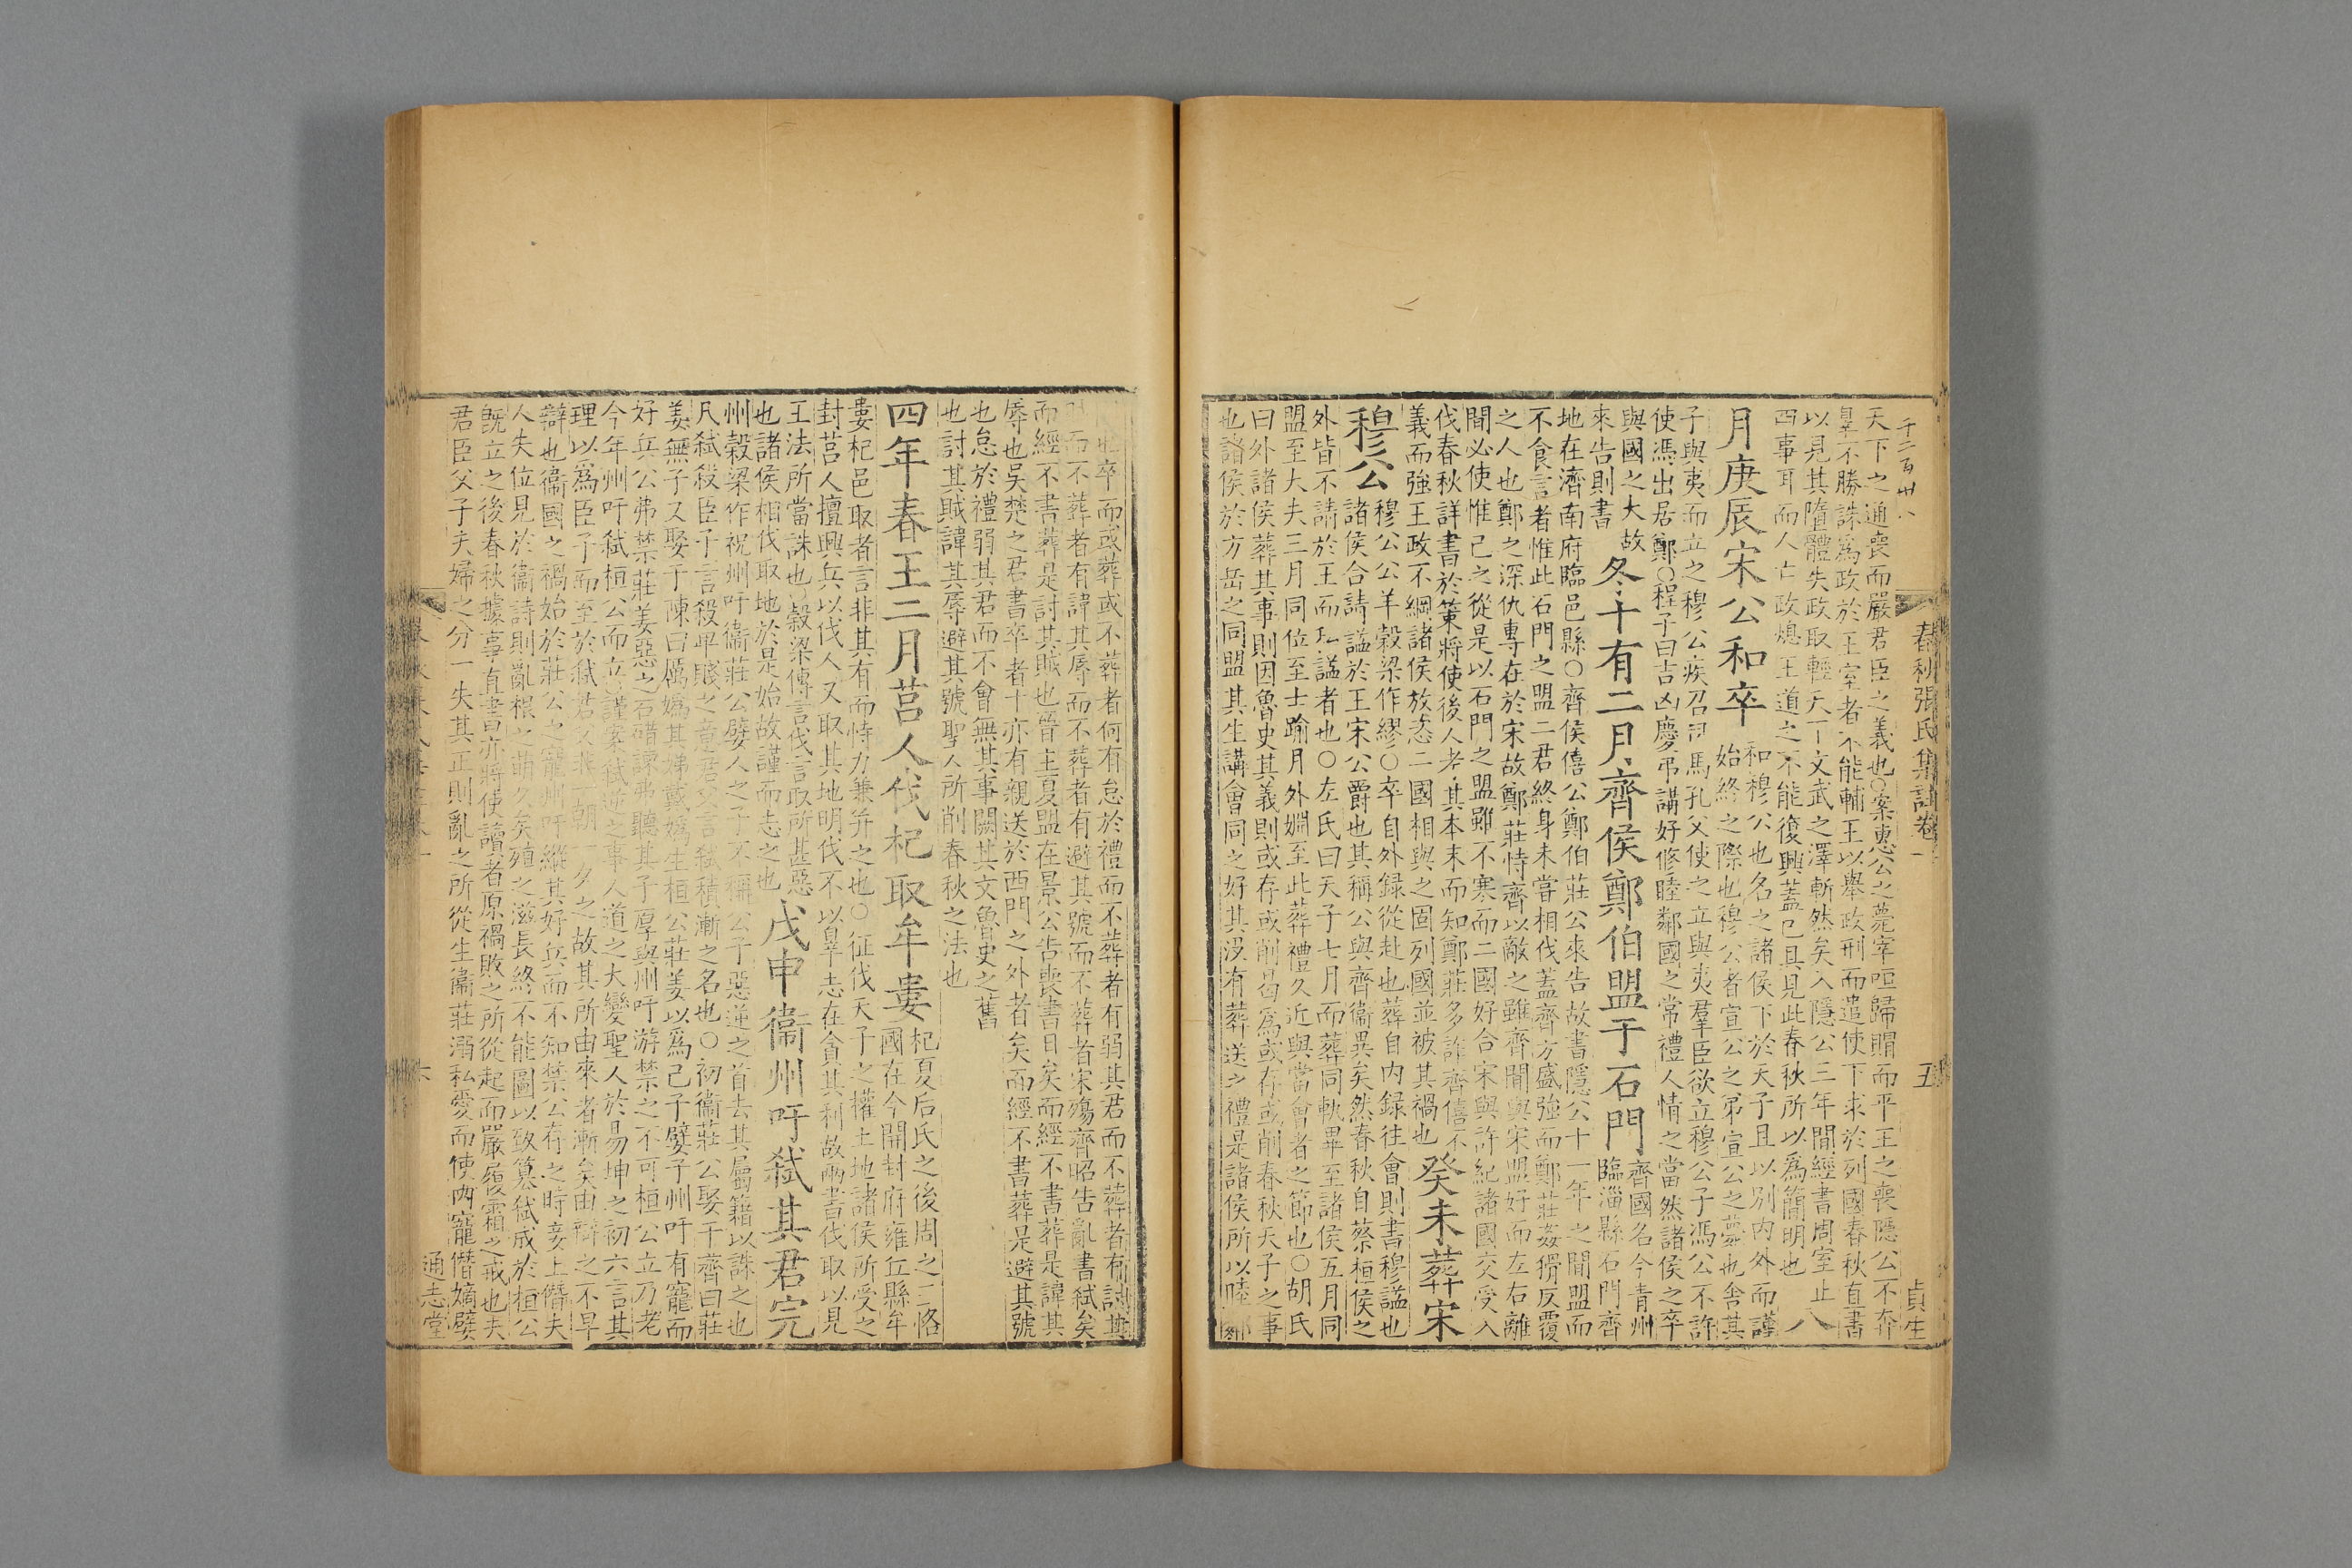 春秋張氏集註卷一
五
天下之通喪而嚴君臣之義也○案惠公之薨宰咺歸賵而平王之喪隱公不奔
辠不勝誅爲政於王室者不能輔王以舉政刑而遣使下求於列國春秋直書
以見其隋體失政取輕天下文武之澤斬然矣入隱公三年間經書周室止
四事耳而人亡政熄王道之不能復興蓋已具見此春秋所以爲簡明也 八
月庚辰宋公和卒
和穆公也名之諸侯下於天子且以別内外而謹
始終之際也穆公者宣公之弟宣公之薨也舍其
子與夷而立之穆公疾召司馬孔父使之立與夷羣臣欲立穆公子馮公不許
使馮出居鄭○程子曰吉凶慶弔講好修睦鄰國之常禮人情之當然諸侯之卒
與國之大故
來告則書
冬十有二月齊侯鄭伯盟于石門
齊國名今青州
臨淄縣石門齊
地在濟南府臨邑縣○齊侯僖公鄭伯莊公來告故書隱公十一年之間盟而
不食言者惟此石門之盟二君終身未嘗相伐蓋齊方盛強而鄭莊姦猾反覆
之人也鄭之深仇專在於宋故鄭莊恃齊以敵之雖齊間與宋盟好而左右離
間必使惟己之從是以石門之盟雖不寒而二國好合宋與許紀諸國交受入
伐春秋詳書於策將使後人考其本末而知鄭莊多詐齊僖不
義而強王政不綱諸侯放恣二國相與之固列國並被其禍也
癸未葬宋
穆公
穆公公羊穀梁作繆○卒自外録從赴也葬自内録往會則書穆謚也
諸侯合請謚於王宋公爵也其稱公與齊衞異矣然春秋自蔡桓侯之
外皆不請於王而私謚者也○左氏曰天子七月而葬同軌畢至諸侯五月同
盟至大夫三月同位至士踰月外姻至此葬禮久近與當會者之節也○胡氏
曰外諸侯葬其事則因魯史其義則或存或削曷爲或存或削春秋天子之事
也諸侯於方岳之同盟其生講會同之好其没有葬送之禮是諸侯所以睦鄰
也卒而或葬或不葬者何有怠於禮而不葬者有弱其君而不葬者有討其
而不葬者有諱其辱而不葬者有避其號而不葬者宋殤齊昭告亂書弑矣
而經不書葬是討其賊也晉主夏盟在景公告喪書日矣而經不書葬是諱其
辱也吳楚之君書卒者十亦有親送於西門之外者矣而經不書葬是避其號
也怠於禮弱其君而不會無其事闕其文魯史之舊
也討其賊諱其辱避其號聖人所削春秋之法也
四年春王二月莒人伐杞取牟婁
杞夏后氏之後周之三恪
國在今開封府雍丘縣牟
婁杞邑取者言非其有而恃力兼并之也○征伐天子之權土地諸侯所受之
封莒人擅興兵以伐人又取其地明伐不以辠志在貪其利故兩書伐取以見
王法所當誅也○穀梁傳言伐言取所甚惡
也諸侯相伐取地於是始故謹而志之也
戊申衞州吁弑其君完
州穀梁作祝州吁衞莊公嬖人之子不稱公子惡逆之首去其屬籍以誅之也
凡弑殺臣子言殺卑賤之意君父言弑積漸之名也○初衞莊公娶于齊曰莊
姜無子又娶于陳曰厲嬀其娣戴嬀生桓公莊姜以爲己子嬖子州吁有寵而
好兵公弗禁莊姜惡之石碏諫弗聽其子厚與州吁游禁之不可桓公立乃老
今年州吁弑桓公而立謹案弑逆之事人道之大變聖人於易坤之初六言其
理以爲臣子而至於弑君父非一朝一夕之故其所由來者漸矣由辯之不早
辯也衞國之禍始於莊公之寵州吁縱其好兵而不知禁公存之時妾上僭夫
人失位見於衞詩則亂根之萌久矣殖之滋長終不能圖以致簒弑成於桓公
既立之後春秋據事直書亦將使讀者原禍敗之所從起而嚴履霜之戒也夫
君臣父子夫婦之分一失其正則亂之所從生衞莊溺私愛而使内寵僭嫡嬖
六
通志堂
貞生